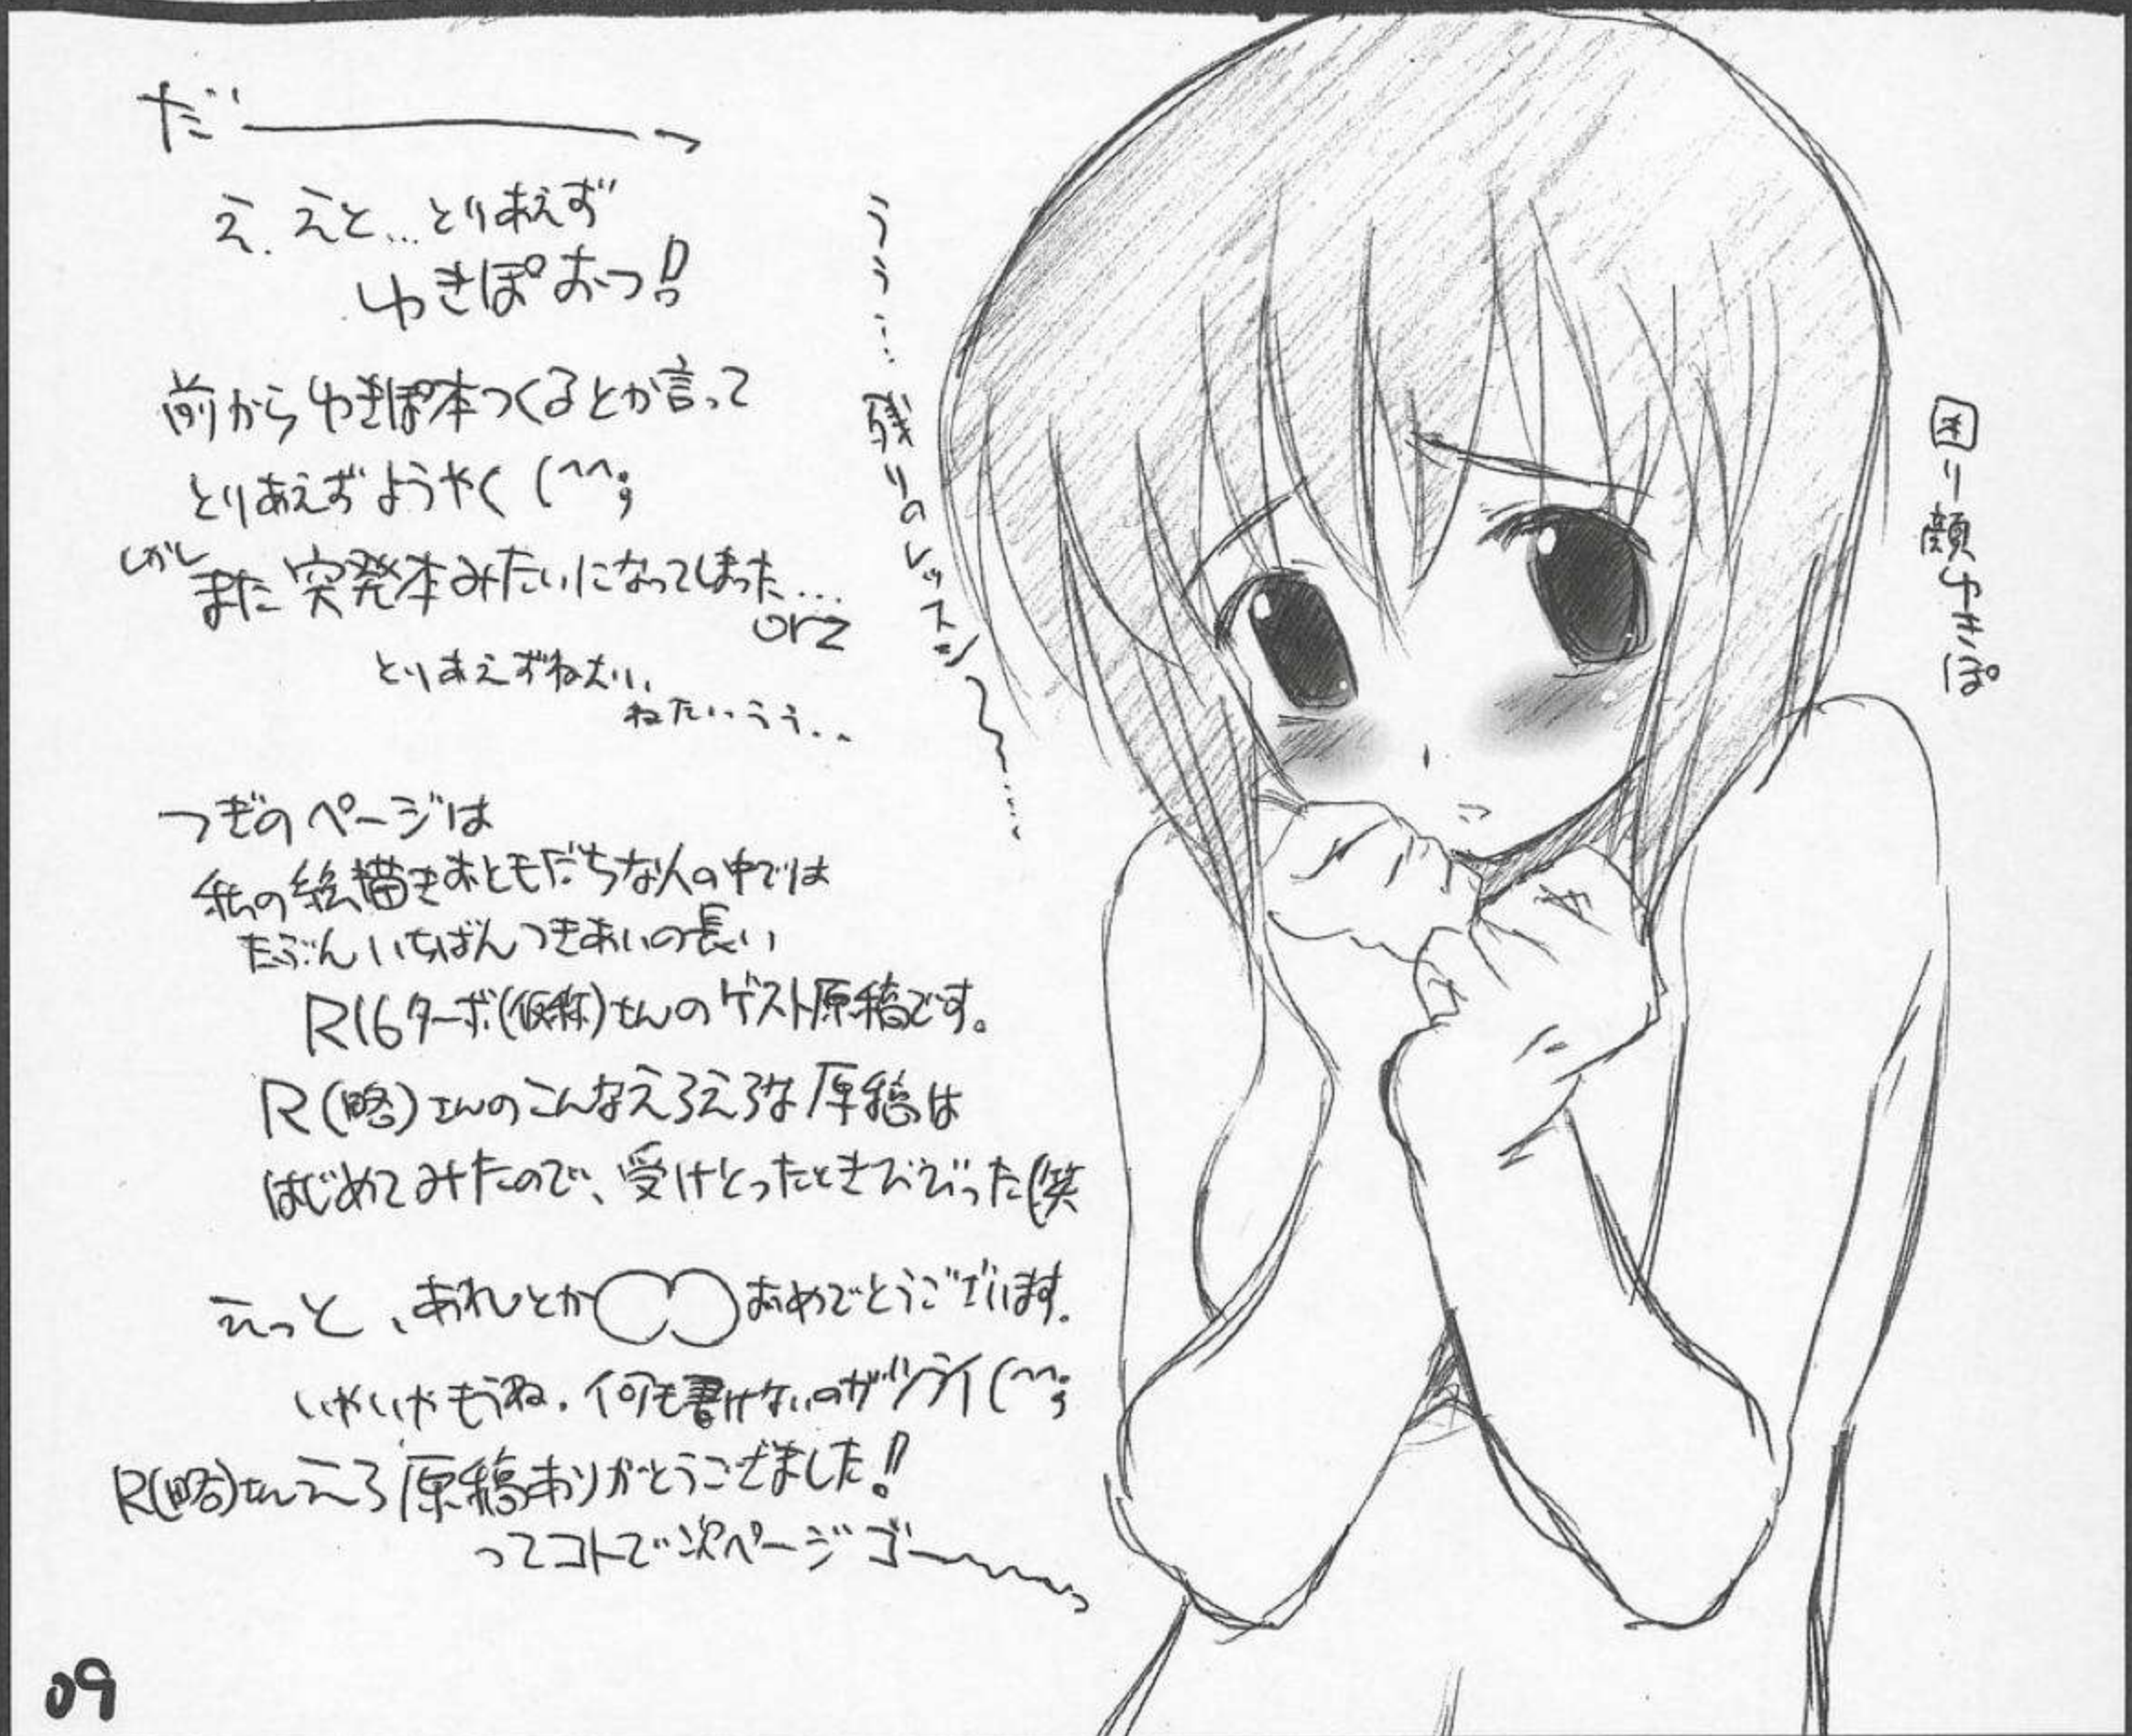 だーーーーーっ
え、えと…とりあえず
ゆきぽおっ!!
前からゆきぽ本つくるとか言って
とりあえずようやく(^^;
しかし
また突発本みたいになってしまった…
orz
とりあえずねたい、
ねたいっうう..
つぎのページは
私の絵描きおともだちな人の中では
たぶんいちばんつきあいの長い
R16ターボ(仮称)さんのゲスト原稿です。
R(略)さんのこんなえろえろな原稿は
はじめてみたので、受けとったときびびった(笑
えっと、あれとか◯◯おめでとうございます。
いやいやもうね、何も書けないのがツライ(^^;
R(略)さんえろ原稿ありがとうござました!!
ってコトで次ページゴー〜〜っ
うう……残りのレッスン〜〜……
困り顔ゆきぽ
09